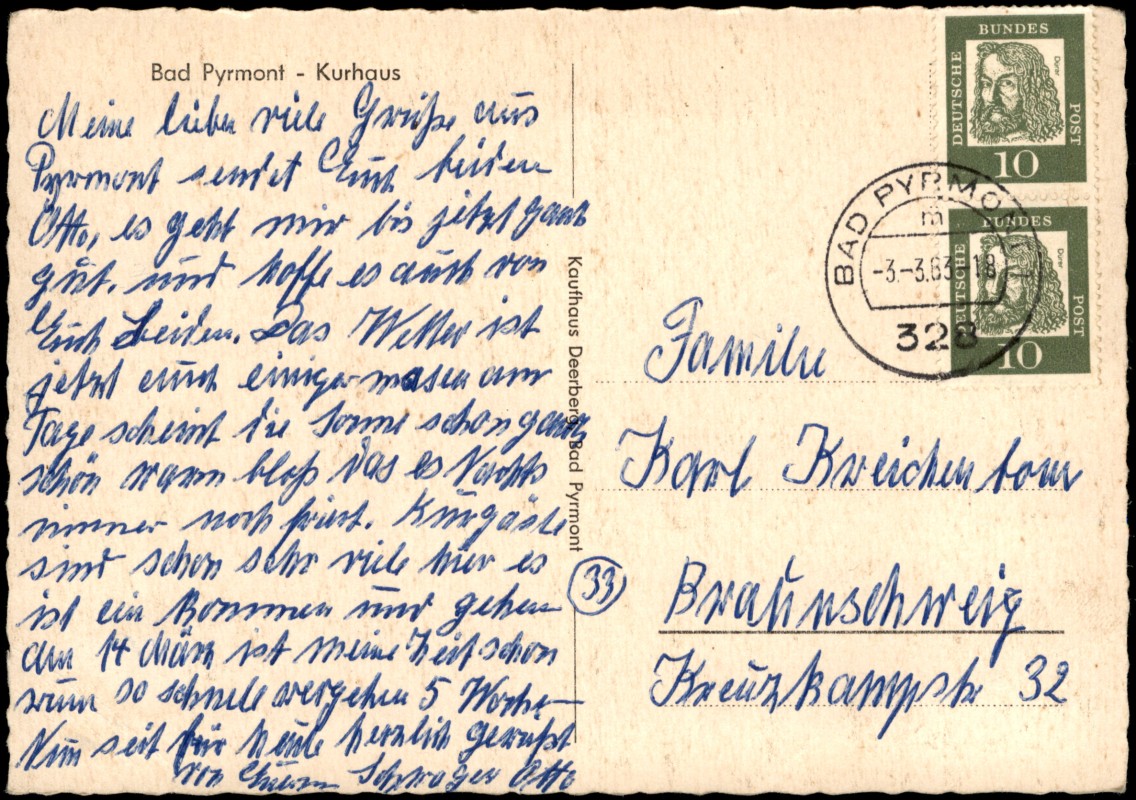 Bad Pyrmont - Kurhaus
Meine lieben viele Grüße aus
Pyrmont sendet Euch beiden
Otto, es geht mir bis jetzt ganz
gut, und hoffe es auch von
Euch beiden. Das Wetter ist
jetzt auch einigermasen am
Tage scheint die Sonne schon ganz
schön warm bloß das es Nachts
immer noch friert. Kurgäste
sind schon sehr viele hier es
ist ein kommen und gehen
am 14 März ist meine Zeit schon
rum so schnele vergehen 5 Woche
Nun seit für heute herzlich gerüßt
von Eurem Schwager Otto
Kaufhaus Deerberg, Bad Pyrmont
DEUTSCHE BUNDES POST
Dürer
10
DEUTSCHE BUNDES POST
Dürer
10
BAD PYRMONT
m
-3.-3.63-18
328
Familie
Karl Kreichenbom
33
Braunschweig
Kreuzkampstr 32